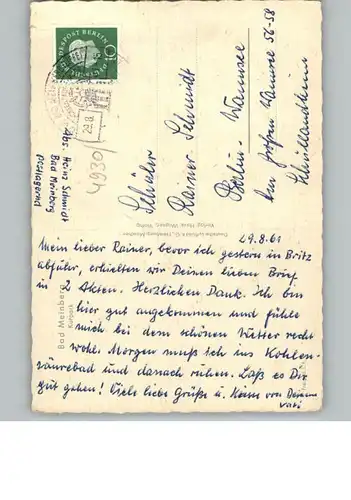 DEUTSCHE BUNDESPOST BERLIN
10
29.8.
4930/
Abs. Heinz Schmidt
Bad Meinberg
postlagernd
Schüler
Rainer Schmidt
Berlin-Wannsee
Am großen Wannsee 56-58
Schullandheim
Bad Meinberg
Kurpark
29.8.61
Mein lieber Rainer, bevor ich gestern in Britz
abfuhr, erhielten wir Deinen lieben Brief
in 2 Akten. Herzlichen Dank. Ich bin
hier gut angekommen und fühle
mich bei dem schönen Wetter recht
wohl. Morgen muß ich ins Kohlen-
säurebad und danach ruhen. Laß es Dir
gut gehen! Viele liebe Grüße u. Küsse von Deinem
Vati